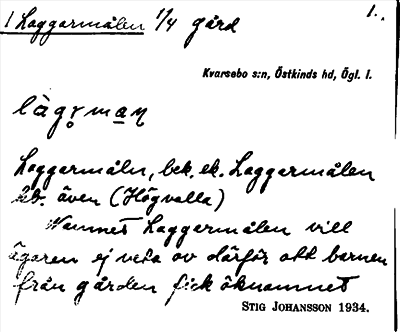 1 Laggarmålen 1/4 gård 1.
Kvarsebo s:n, Östkinds hd, Ögl. l.
Laggarmåln, bek. ek. Laggarmålen
är. även (Högvalla)
Namnet Laggarmålen vill
ägaren ej veta av därför att barnen
från gården fick öknamnet
STIG JOHANSSON 1934.